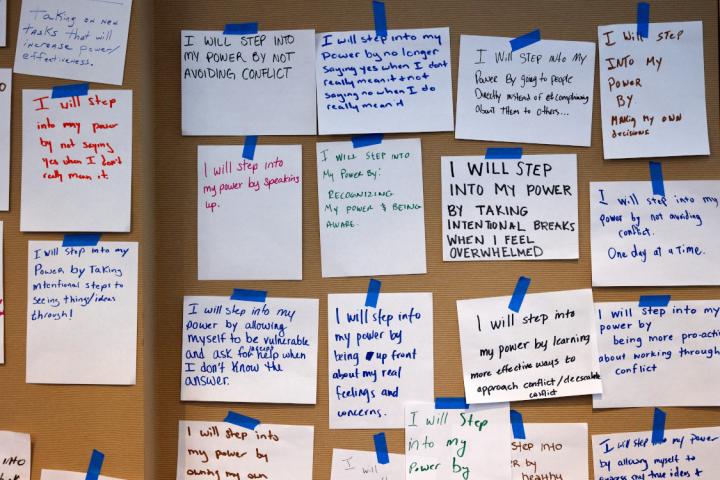 Taking on new
tasks that will
increase power/
effectiveness.
I will step
into my power
by not saying
yes when I don't
really mean it.
I will step into my
Power by Taking
intentional steps to
seeing things/ideas
through!
I WILL STEP INTO
MY POWER BY NOT
AVOIDING CONFLICT
I will step into my
Power by no longer
saying yes when I dont
really mean it & not
saying no when I do
really mean it
I Will Step into My
Power By going to people
Directly instead of complaining
About Them to others...
I Will Step
INTO MY
POWER
BY
MAKING MY OWN
decisions
I will step into
my power by speaking
up.
I WILL STEP INTO
My Power By:
RECOGNIZING
MY POWER & BEING
AWARE.
I WILL STEP
INTO MY POWER
BY TAKING
INTENTIONAL BREAKS
WHEN I FEEL
OVERWHELMED
I will step into my
power by not avoiding
conflict.
One day at a Time.
I will step into my
power by allowing
myself to be vulnerable
and ask for help when
I don't know the
answer.
I will step into
my power by
being up front
about my real
feelings and
concerns.
I will step into
my power by learning
more effective ways to
approach conflict/deescalate
conflict
I will step into my
power by
being more pro-acti
about working through
conflict
I will step into
my power by
owning my own
I will
I will Step
into my
Power by
step into
by
healthy
I will step into my power
by allowing myself to
express my true ideas &
into